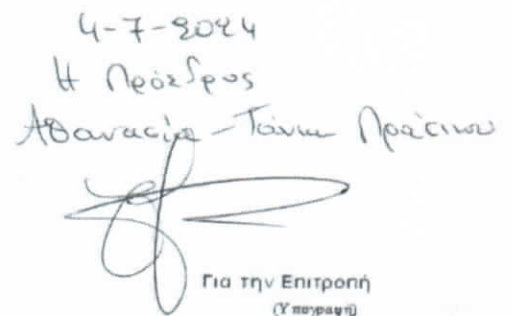 4-7-2024
Η Πρόεδρος
Αθανασία - Τάνια
Για την Επιτροπή
(Υπογραφή)